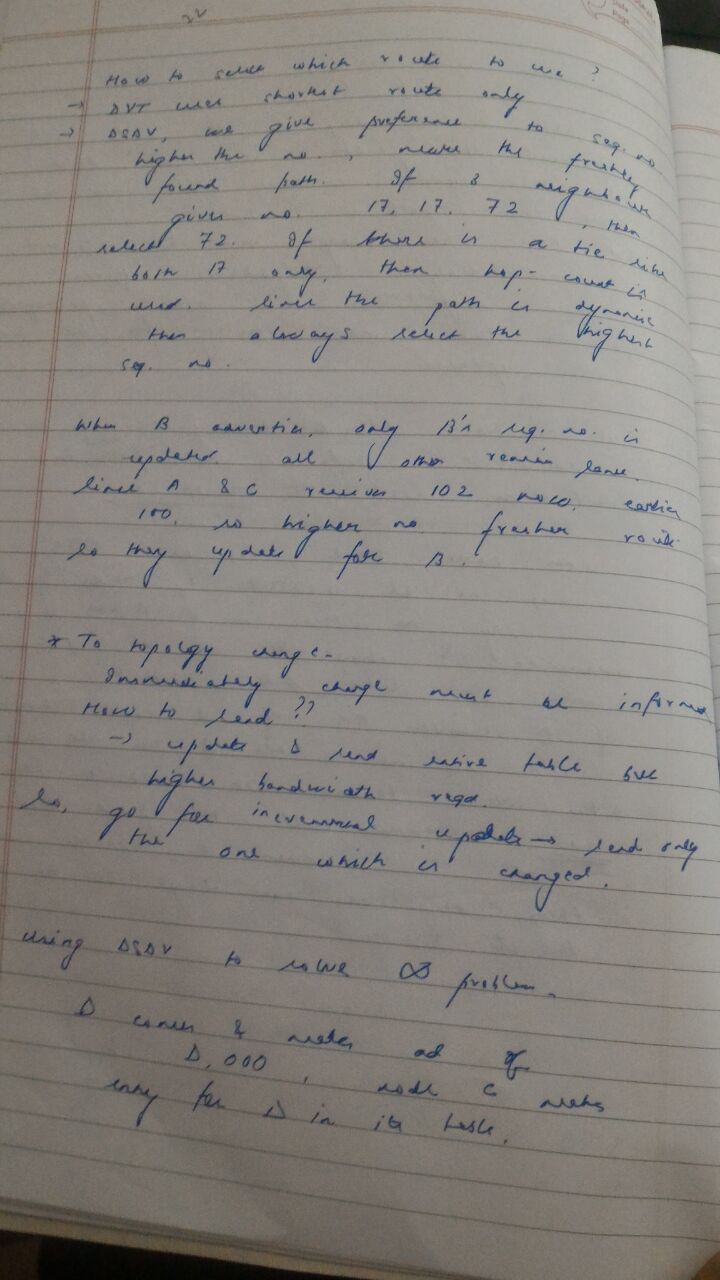 How to select which route to use ?
→ DVT uses shortest route only
→ DSDV, we give preference to seq. no.
higher the no., means the freshly
found path. If 3 neighbours
gives no. 17, 17, 72, then
select 72. If there is a tie like
both 17 only, then hop-count is
used. Since the path is dynamic
then always select the highest
seq. no.
When B advertise, only B's seq. no. is
updated. all other remain same.
Since A & C receives 102 now, earlier
100, so higher no. fresher route
So they update for B.
* To topolgy change-
Immediately change must be informed
How to send ??
→ update & send entire table but
higher bandwidth reqd.
So, go for incremental update → send only
the one which is changed.
using DSDV to solve ∞ problem.
D comes & makes ad of
D, 000, node C makes
entry for D in its table.